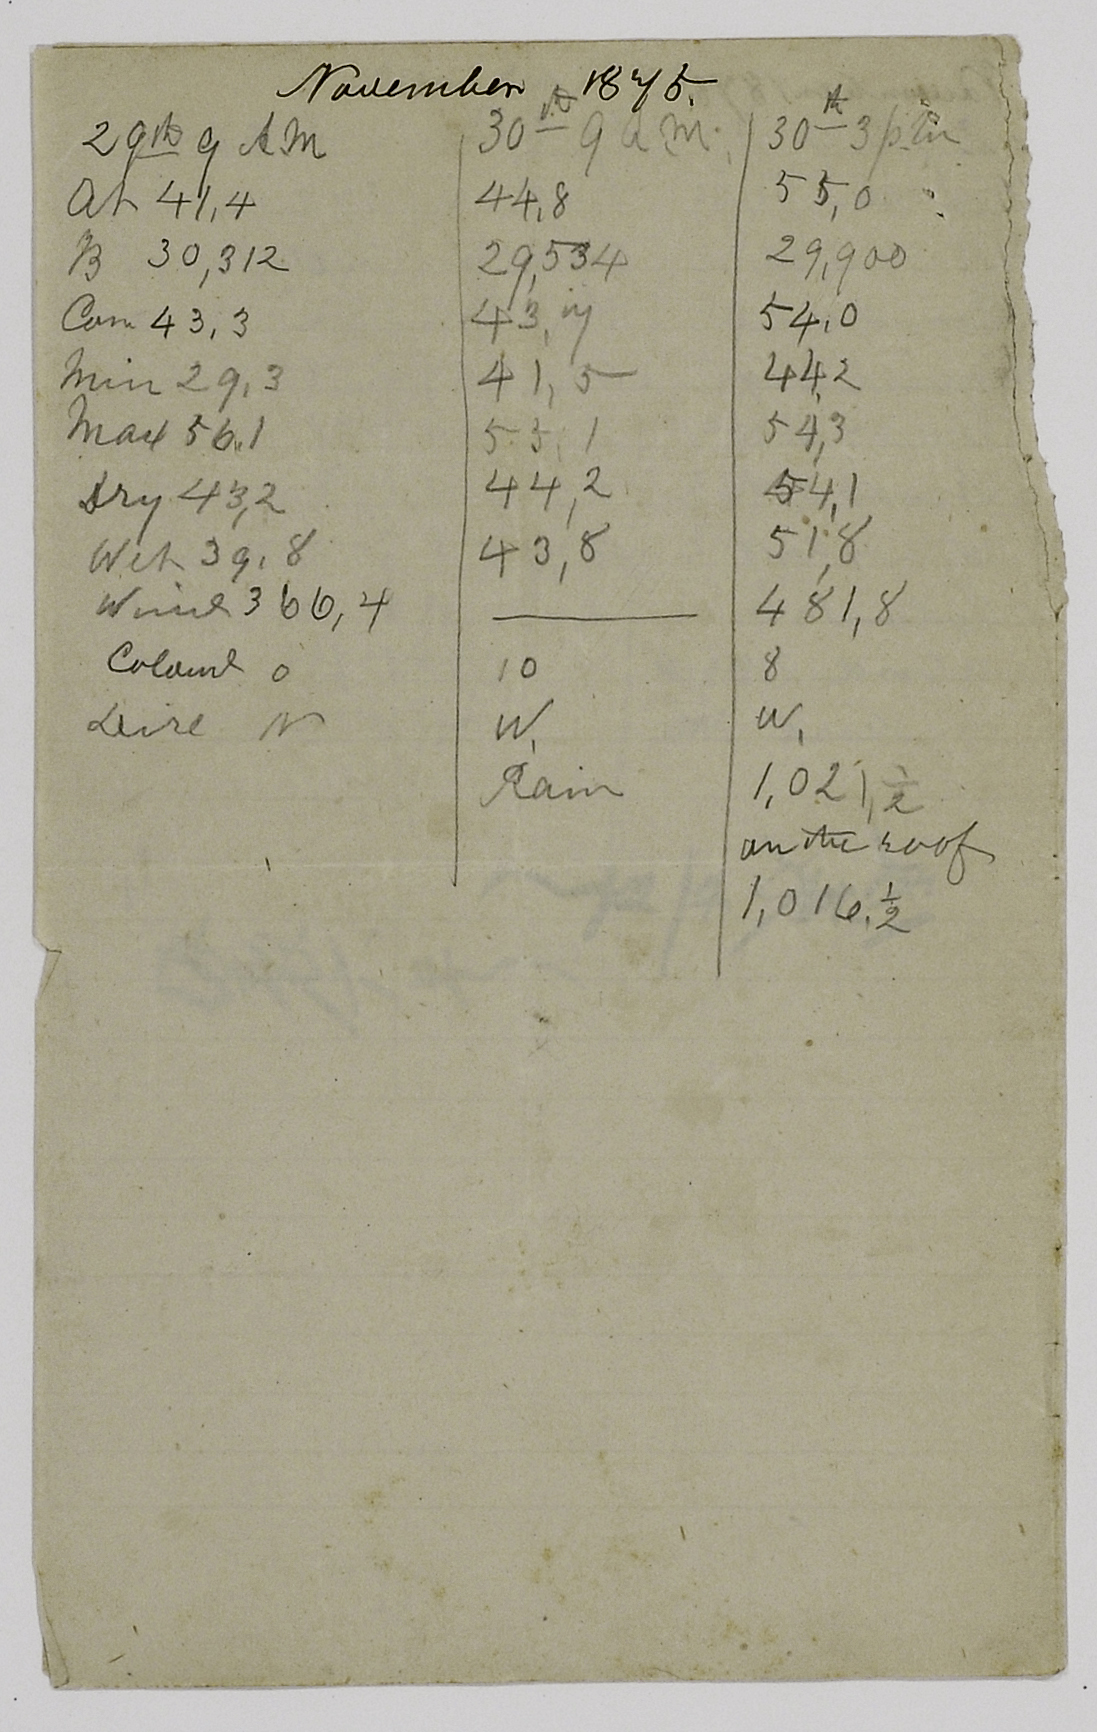 November 1875.
29th 9 AM 30th 9 a m. 30th 3 p m
At 41,4 44,8 55,0
B 30,312 29,534 29,900
Com 43,3 43,7 54,0
Min 29,3 41,5 44,2
Max 56.1 55,1 54,3
Dry 43,2 44,2 54,1
Wet 39,8 43,8 51,8
Wind 366,4 481,8
0 10 8
Dire N W, W,
Rain 1,021,½
on the roof
1,016,½